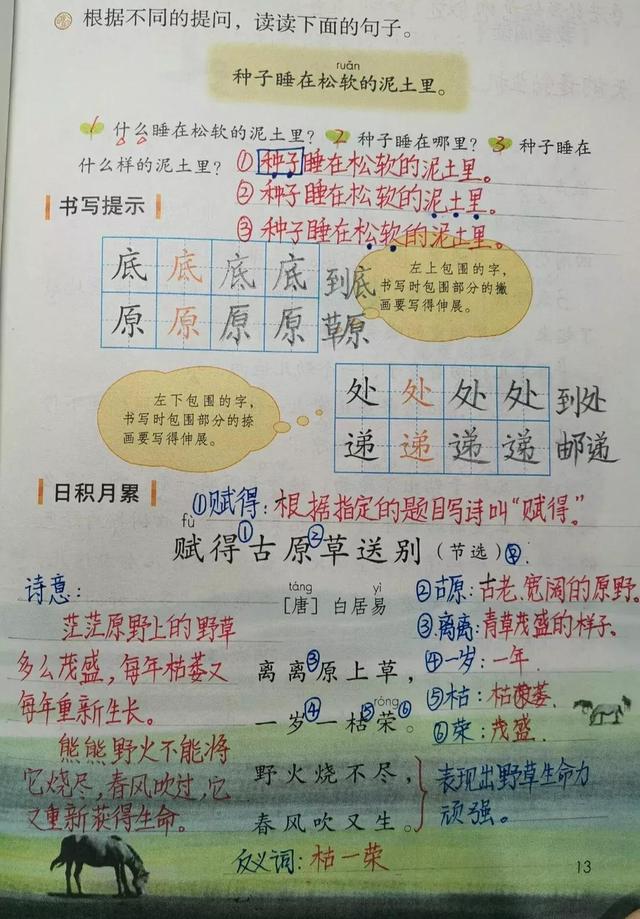 根据不同的提问，读读下面的句子。
ruǎn
种子睡在松软的泥土里。
1 什么睡在松软的泥土里？ 2 种子睡在哪里？ 3 种子睡在
什么样的泥土里？ ①种子睡在松软的泥土里。
②种子睡在松软的泥土里。
③种子睡在松软的泥土里。
书写提示
底 底 底 底 到底
原 原 原 原 草原
左上包围的字，
书写时包围部分的撇
画要写得伸展。
左下包围的字，
书写时包围部分的捺
画要写得伸展。
处 处 处 处 到处
递 递 递 递 邮递
日积月累
①赋得：根据指定的题目写诗叫“赋得。”
fù
赋得①古原②草送别（节选）
táng yì
［唐］白居易
离离③原上草，
róng
一岁④一枯⑤荣⑥。
野火烧不尽，
春风吹又生。
诗意：
茫茫原野上的野草
多么茂盛，每年枯萎又
每年重新生长。
熊熊野火不能将
它烧尽，春风吹过，它
又重新获得生命。
②古原：古老、宽阔的原野。
③离离：青草茂盛的样子。
④一岁：一年.
⑤枯：枯萎.
⑥荣：茂盛.
表现出野草生命力
顽强。
反义词：枯一荣
13